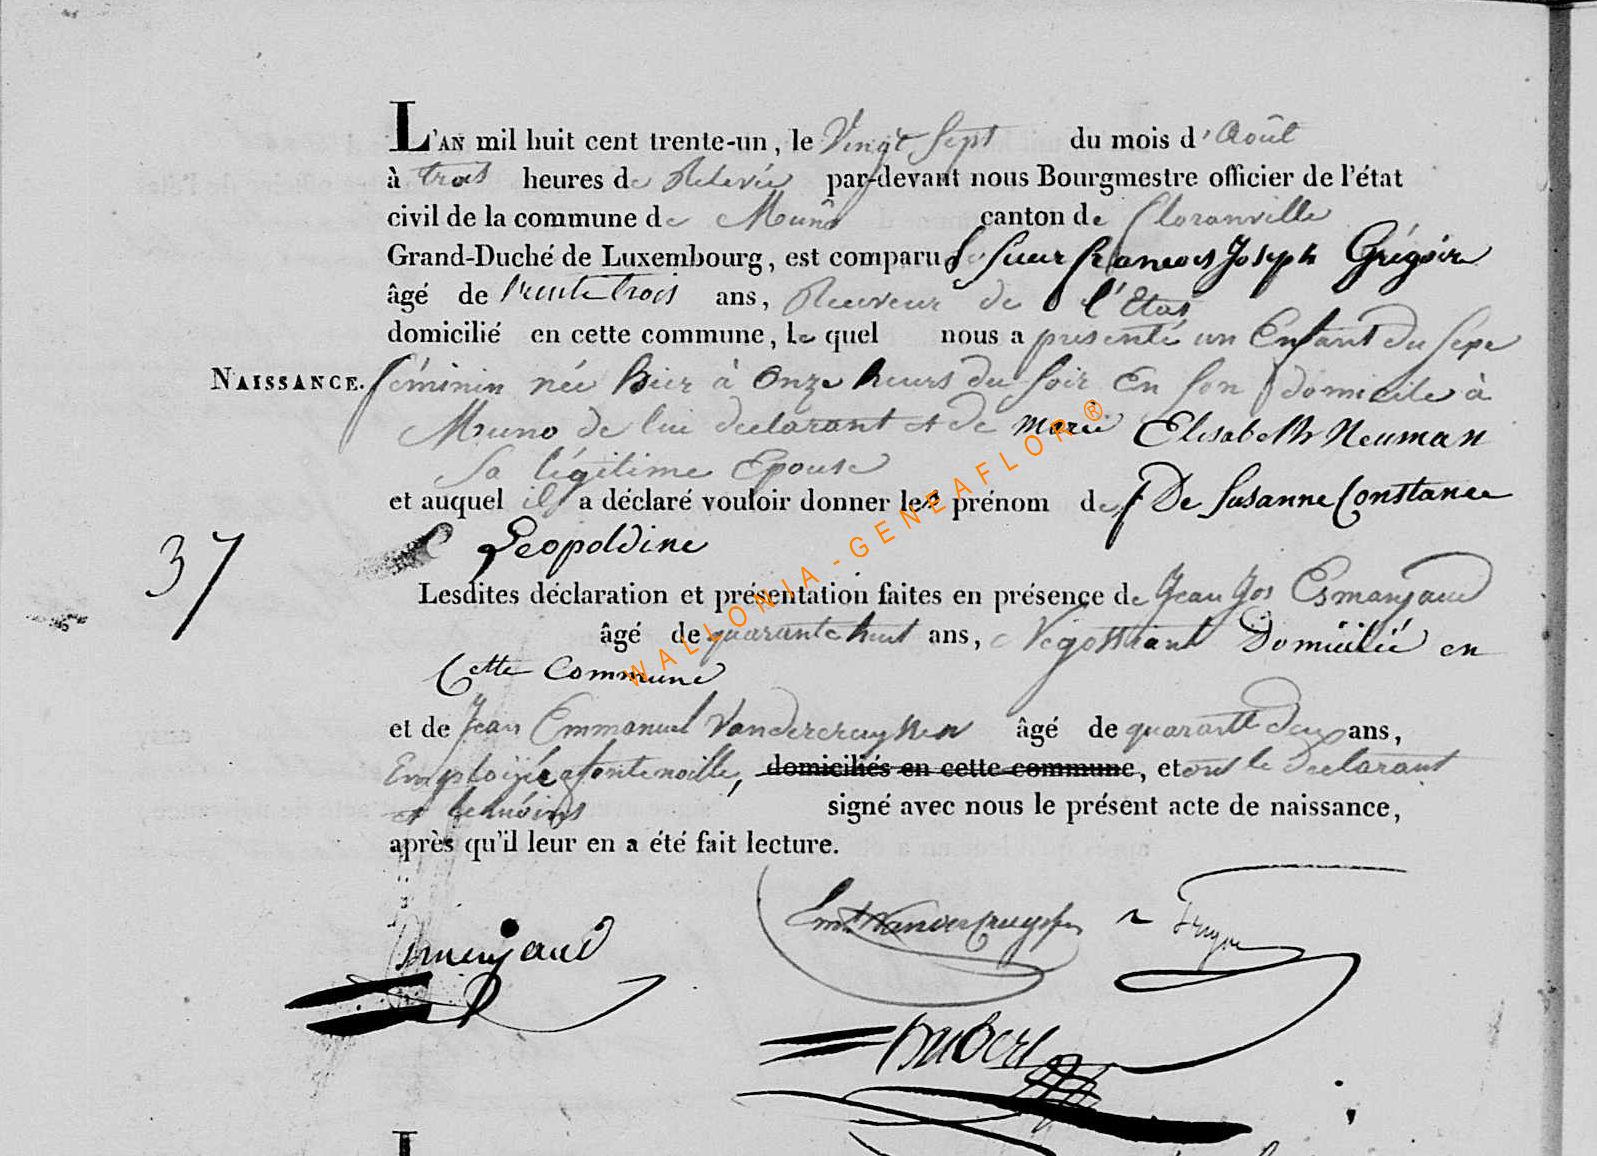 L'AN mil huit cent trente-un, le Vingt Sept du mois d'Août
à trois heures de Relevée par-devant nous Bourgmestre officier de l'état
civil de la commune de Muno canton de Floranville
Grand-Duché de Luxembourg, est comparu Le Sieur francois Joseph Grégoire
âgé de trente trois ans, Receveur de l'Etat
domicilié en cette commune, lequel nous a présenté un Enfant du Sexe
NAISSANCE. féminin née hier à Onze heurs du Soir En Son domicile à
Muno de lui declarant et de marie Elisabeth Neuman
Sa légitime Epouse
et auquel il a déclaré vouloir donner les prénom de De Susanne Constance
Leopoldine
37
Lesdites déclaration et présentation faites en présence de Jean Jos Esmanjaud
âgé de quarante huit ans, Negostiant Domicilié en
Cette Commune
et de Jean Emmanuel Vandercruyssen âgé de quarante deux ans,
Emploiyée a fontenoille, domiciliés en cette commune, et ont le declarant
et temoins signé avec nous le présent acte de naissance,
après qu'il leur en a été fait lecture.
Esmenjaud Em. Vandercruyssen
hubert
WALLONIA-GENEAFLOR®